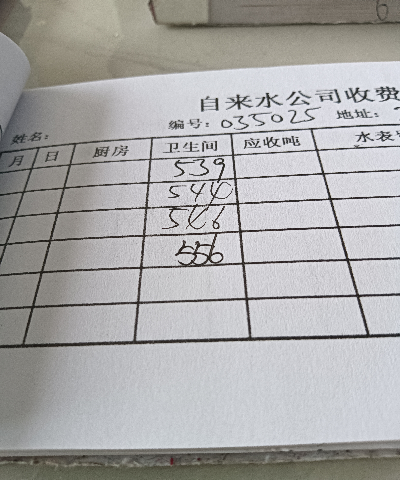 自来水公司收费
编号：035025 地址：
姓名：
月 日 厨房 卫生间 应收吨 水表
539
544
546
556